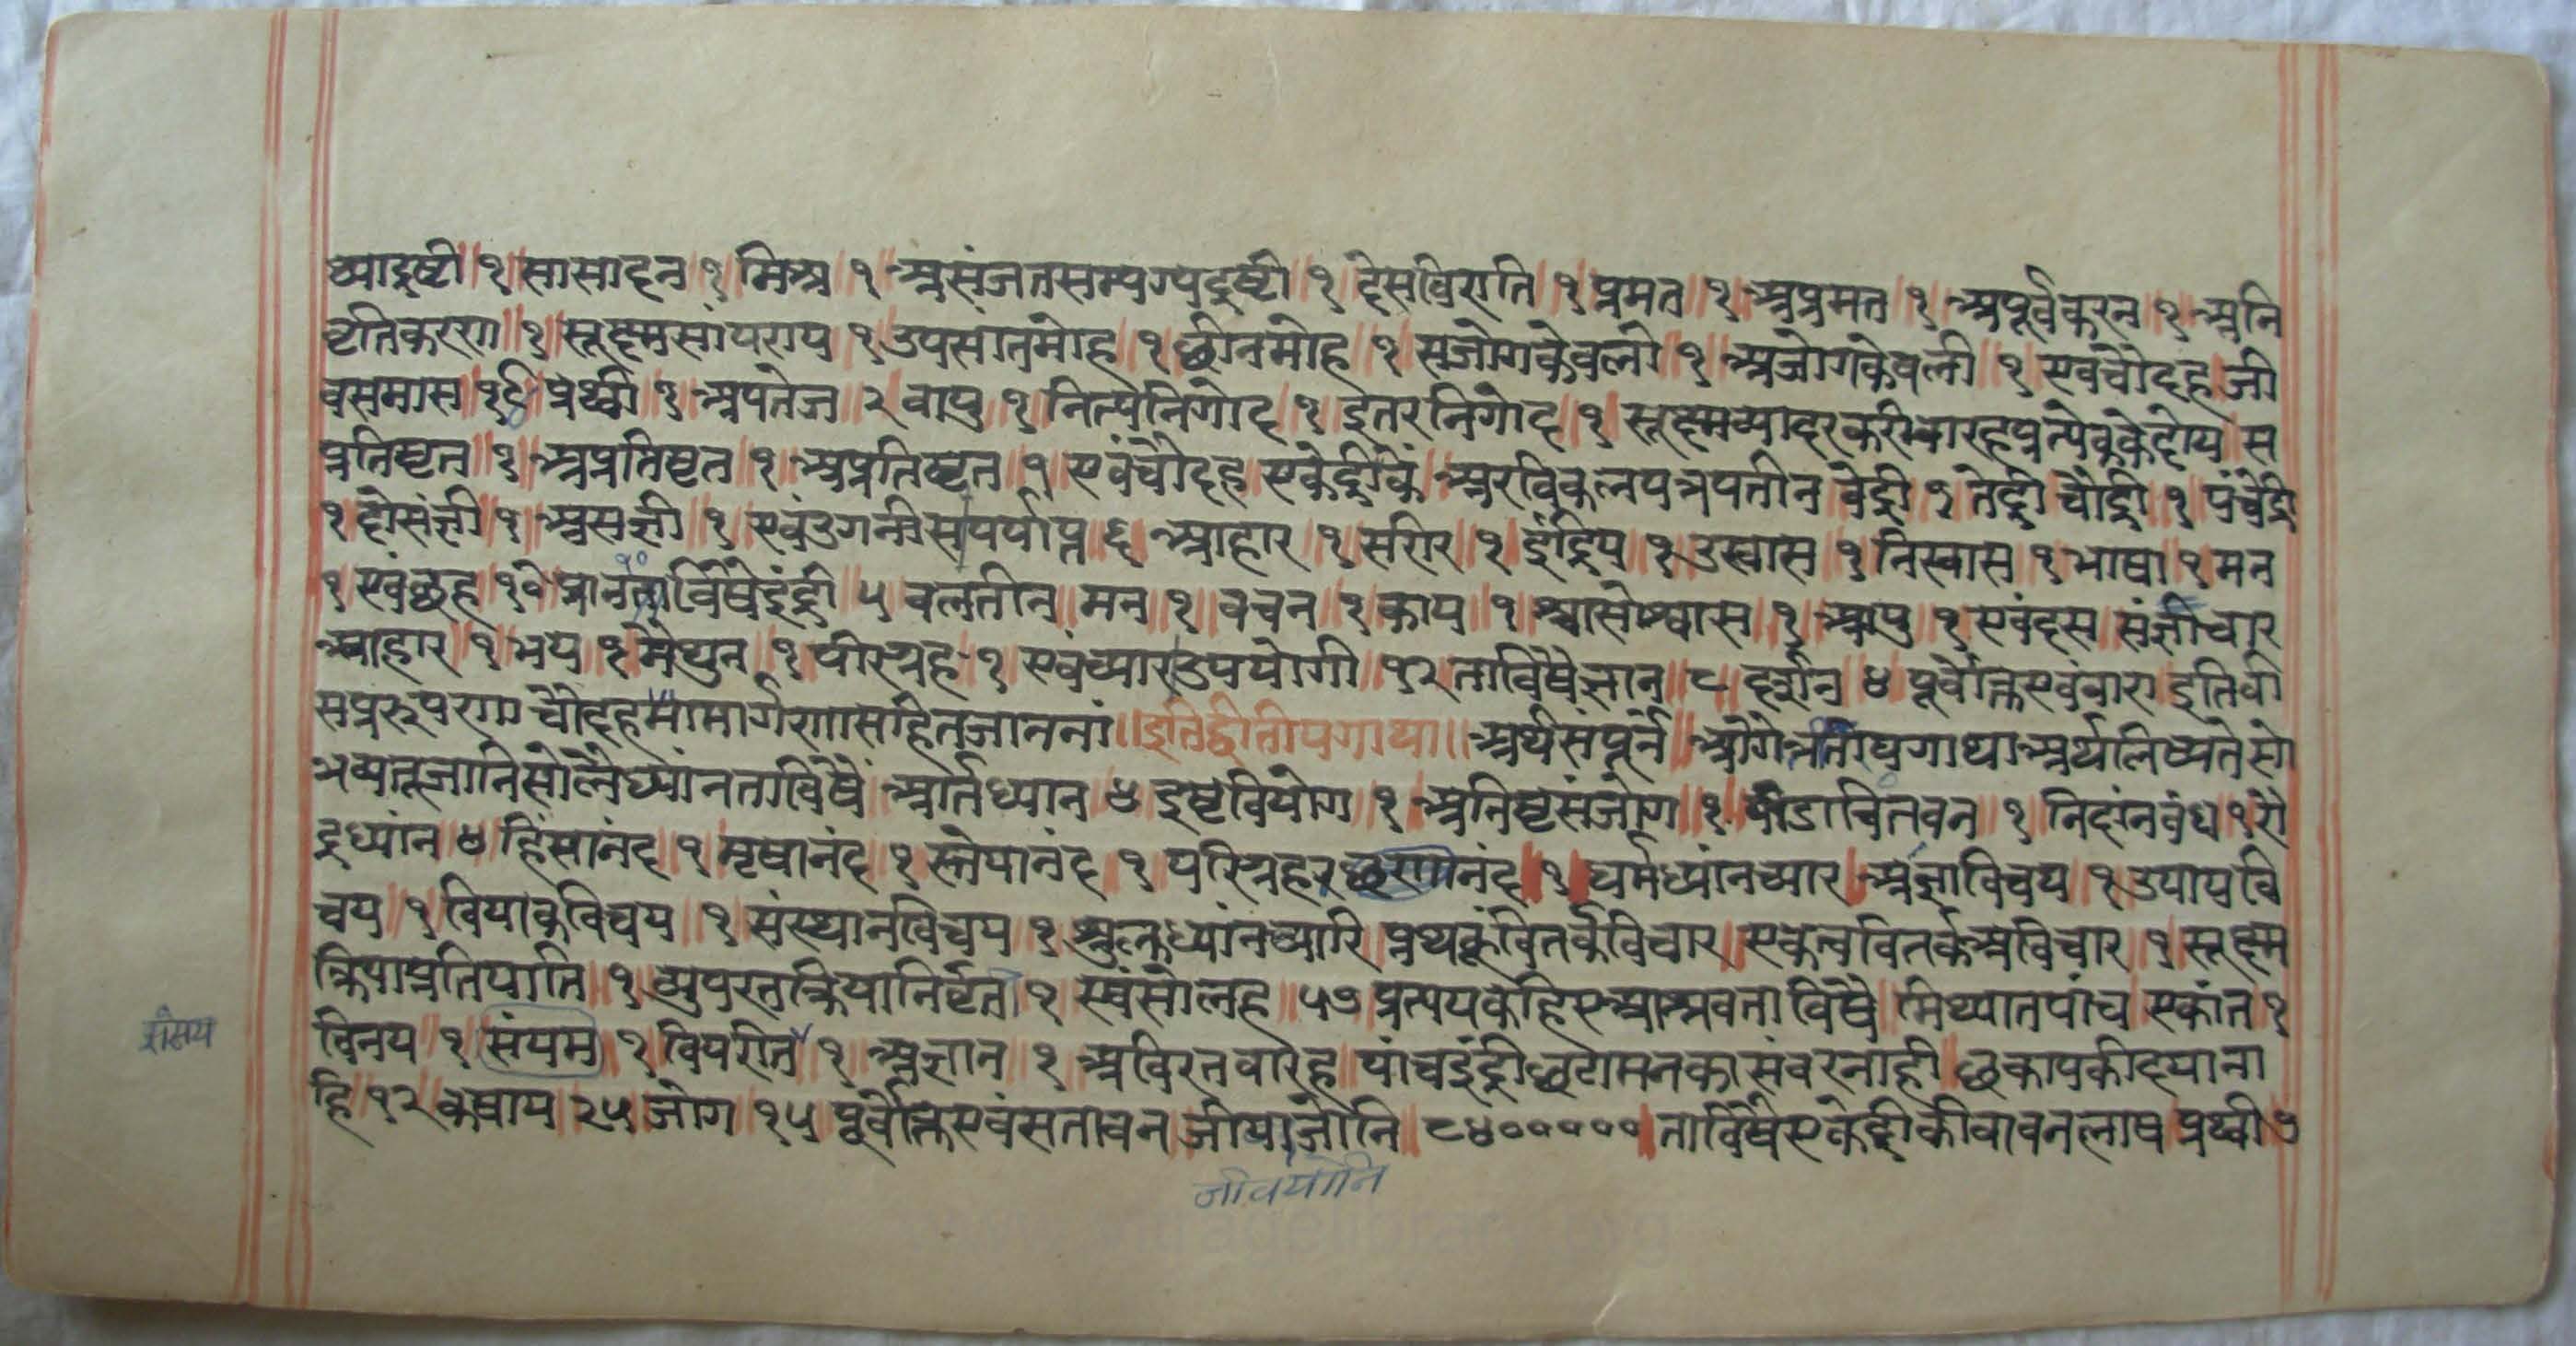 थ्यादृष्टी ॥ १ ॥ सासादन ॥ १ ॥ मिश्र ॥ १ ॥ असंजतसम्यग्यदृष्टी ॥ १ ॥ देसविराति ॥ १ ॥ प्रमत ॥ १ ॥ अप्रमत ॥ १ ॥ अपूर्वकरन ॥ १ ॥ अनि
वृतिकरण ॥ १ ॥ सूक्ष्मसांपराय ॥ १ ॥ उपसांतमोह ॥ १ ॥ छीनमोह ॥ १ ॥ सजोगकेवली ॥ १ ॥ अजोगकेवली ॥ १ ॥ एवंचौदह जी
वसमास ॥ १९ ॥ प्रथ्वी ॥ १ ॥ अपतेज ॥ २ वायु ॥ १ ॥ नित्यनिगोद ॥ १ ॥ इतरनिगोद ॥ १ ॥ सूक्ष्मव्यादरकरीबारहप्रत्येकके दोय स
प्रतिष्टत ॥ १ ॥ अप्रतिष्टत ॥ १ ॥ अप्रतिष्टत ॥ १ ॥ एवंचौदह एकेंद्रीकें अरविकलपत्रपतीन बेंद्री ॥ १ तेंद्री चौंद्री ॥ १ ॥ पंचेंद्री
१ दोसंज्ञी ॥ १ ॥ असज्ञी ॥ १ ॥ एवंउगनीस पर्याप्त ६ ॥ आहार ॥ १ ॥ सरिर ॥ १ ॥ इंद्रिय ॥ १ ॥ उस्वास ॥ १ ॥ निस्वास ॥ १ ॥ भाषा ॥ १ ॥ मन
१ एवंछह ॥ १० प्रानताविषेइंद्री ५ बलतीन मन ॥ १ ॥ वचन ॥ १ ॥ काय ॥ १ ॥ श्वासोश्वास ॥ १ ॥ आयु ॥ १ ॥ एवंदस संज्ञीचार
आहार ॥ १ ॥ भय ॥ १ ॥ मैथुन ॥ १ ॥ परिग्रह ॥ १ ॥ एवंच्यार उपयोगी ॥ १२ ताविषैज्ञान ८ दर्शन ४ पूर्वोक्तएवंबारा इतिवी
सप्ररूपरणा चौदहमामार्गणासहितजाननां ॥ इतिद्वीतीयगाथा ॥ अर्थसंपूर्न ॥ आगेत्रतीयगाथाअर्थलिष्यतेसो
भव्यतूजानिसोलैध्यांनताविषै आर्तध्यान ४ इष्टवियोग ॥ १ ॥ अनिष्टसंजोग ॥ १ ॥ पीडाचितवन ॥ १ ॥ निदांनबंध ॥ १ रौ
द्रध्यांन ४ हिंसानंद ॥ १ ॥ मृषानंद ॥ १ ॥ स्तेयानंद ॥ १ ॥ परिग्रहरछणानंद ॥ १ ॥ धर्मध्यांनच्यार अज्ञाविचय ॥ १ ॥ उपायवि
चय ॥ १ ॥ वियाकविचय ॥ १ ॥ संस्थानविचय ॥ १ ॥ शुक्लध्यांनच्यारि प्रथक्वितर्कविचार एकत्ववितर्कअविचार ॥ १ ॥ सूक्ष्म
क्रियाप्रतिपाति ॥ १ ॥ व्युपरतक्रियानिर्वृत ॥ १ ॥ एवंसोलह ॥ ५७ प्रत्ययकहिएआश्रवताविषै मिथ्यातपांच एकांत १
विनय ॥ १ ॥ संयम ॥ १ ॥ विपरीत ॥ १ ॥ अज्ञान ॥ १ ॥ अविरतबारह पांचइंद्रीछटामनकासंवरनाही छकायकीदयाना
हि ॥ १२ कषाय २५ जोग ॥ १५ पूर्वोक्तएवंसतावन जीयाजोनि ॥ ८४००००० ताविषैएकेंद्रीकीबावनलाष प्रथ्वी ७
संसय
जीवयोनि